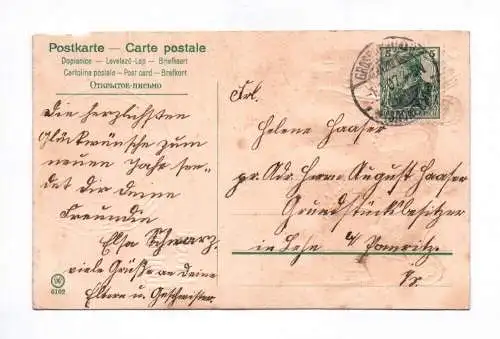 Postkarte — Carte postale
Dopisnice — Levelező-Lap — Briefkaart
Cartolina postale — Post card — Brefkort
Открытое письмо
Die herzlichsten
Glückwünsche zum
neuen Jahr sen-
det dir deine
Freundin
Elsa Schwarz.
viele Grüße an deine
Eltern u. Geschwister.
Frl.
Helene Haaser
pr. Adr. Herrn August Haaser
Grundstücksbesitzer
in
5
6162